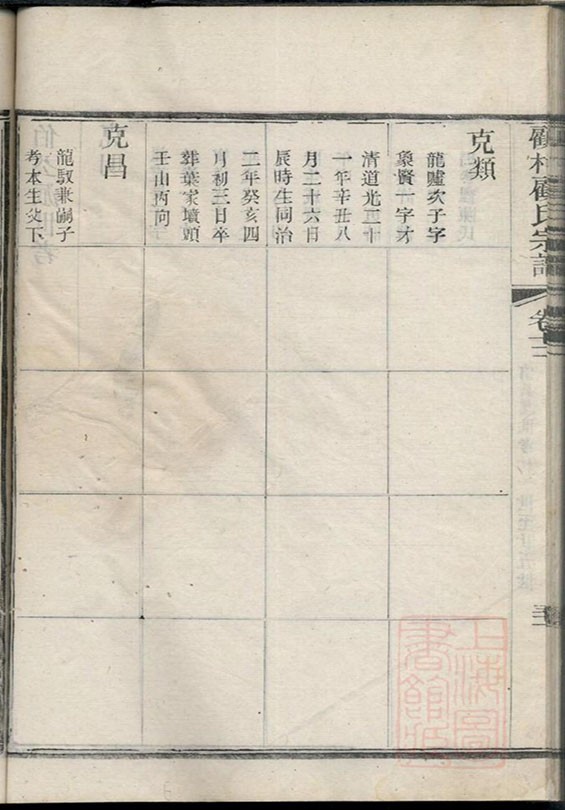 顧氏宗譜
卷十三
克類
龍噓次子字
褧賢一字才
清道光二十
一年辛丑八
月二十六日
辰時生同治
二年癸亥四
月初三日卒
葬葉家墳頭
壬山丙向
克昌
龍馭兼嗣子
考本生父下
上海圖書館藏